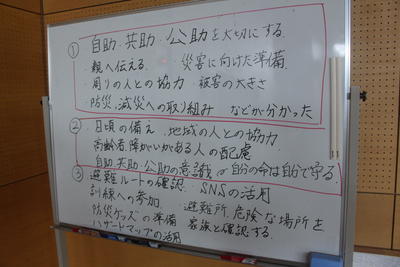 ① 自助・共助・公助を大切にする。
・親へ伝える。 ・災害に向けた準備
・周りの人との協力 ・被害の大きさ
・防災、減災への取り組み などが分かった
② 日頃の備え 地域の人との協力
高齢者障がいがある人の配慮
自助・共助・公助の意識 自分の命は自分で守る。
③ 避難ルートの確認 SNSの活用
訓練への参加 避難所、危険な場所を
防災グッズの準備 家族と確認する。
ハザードマップの活用